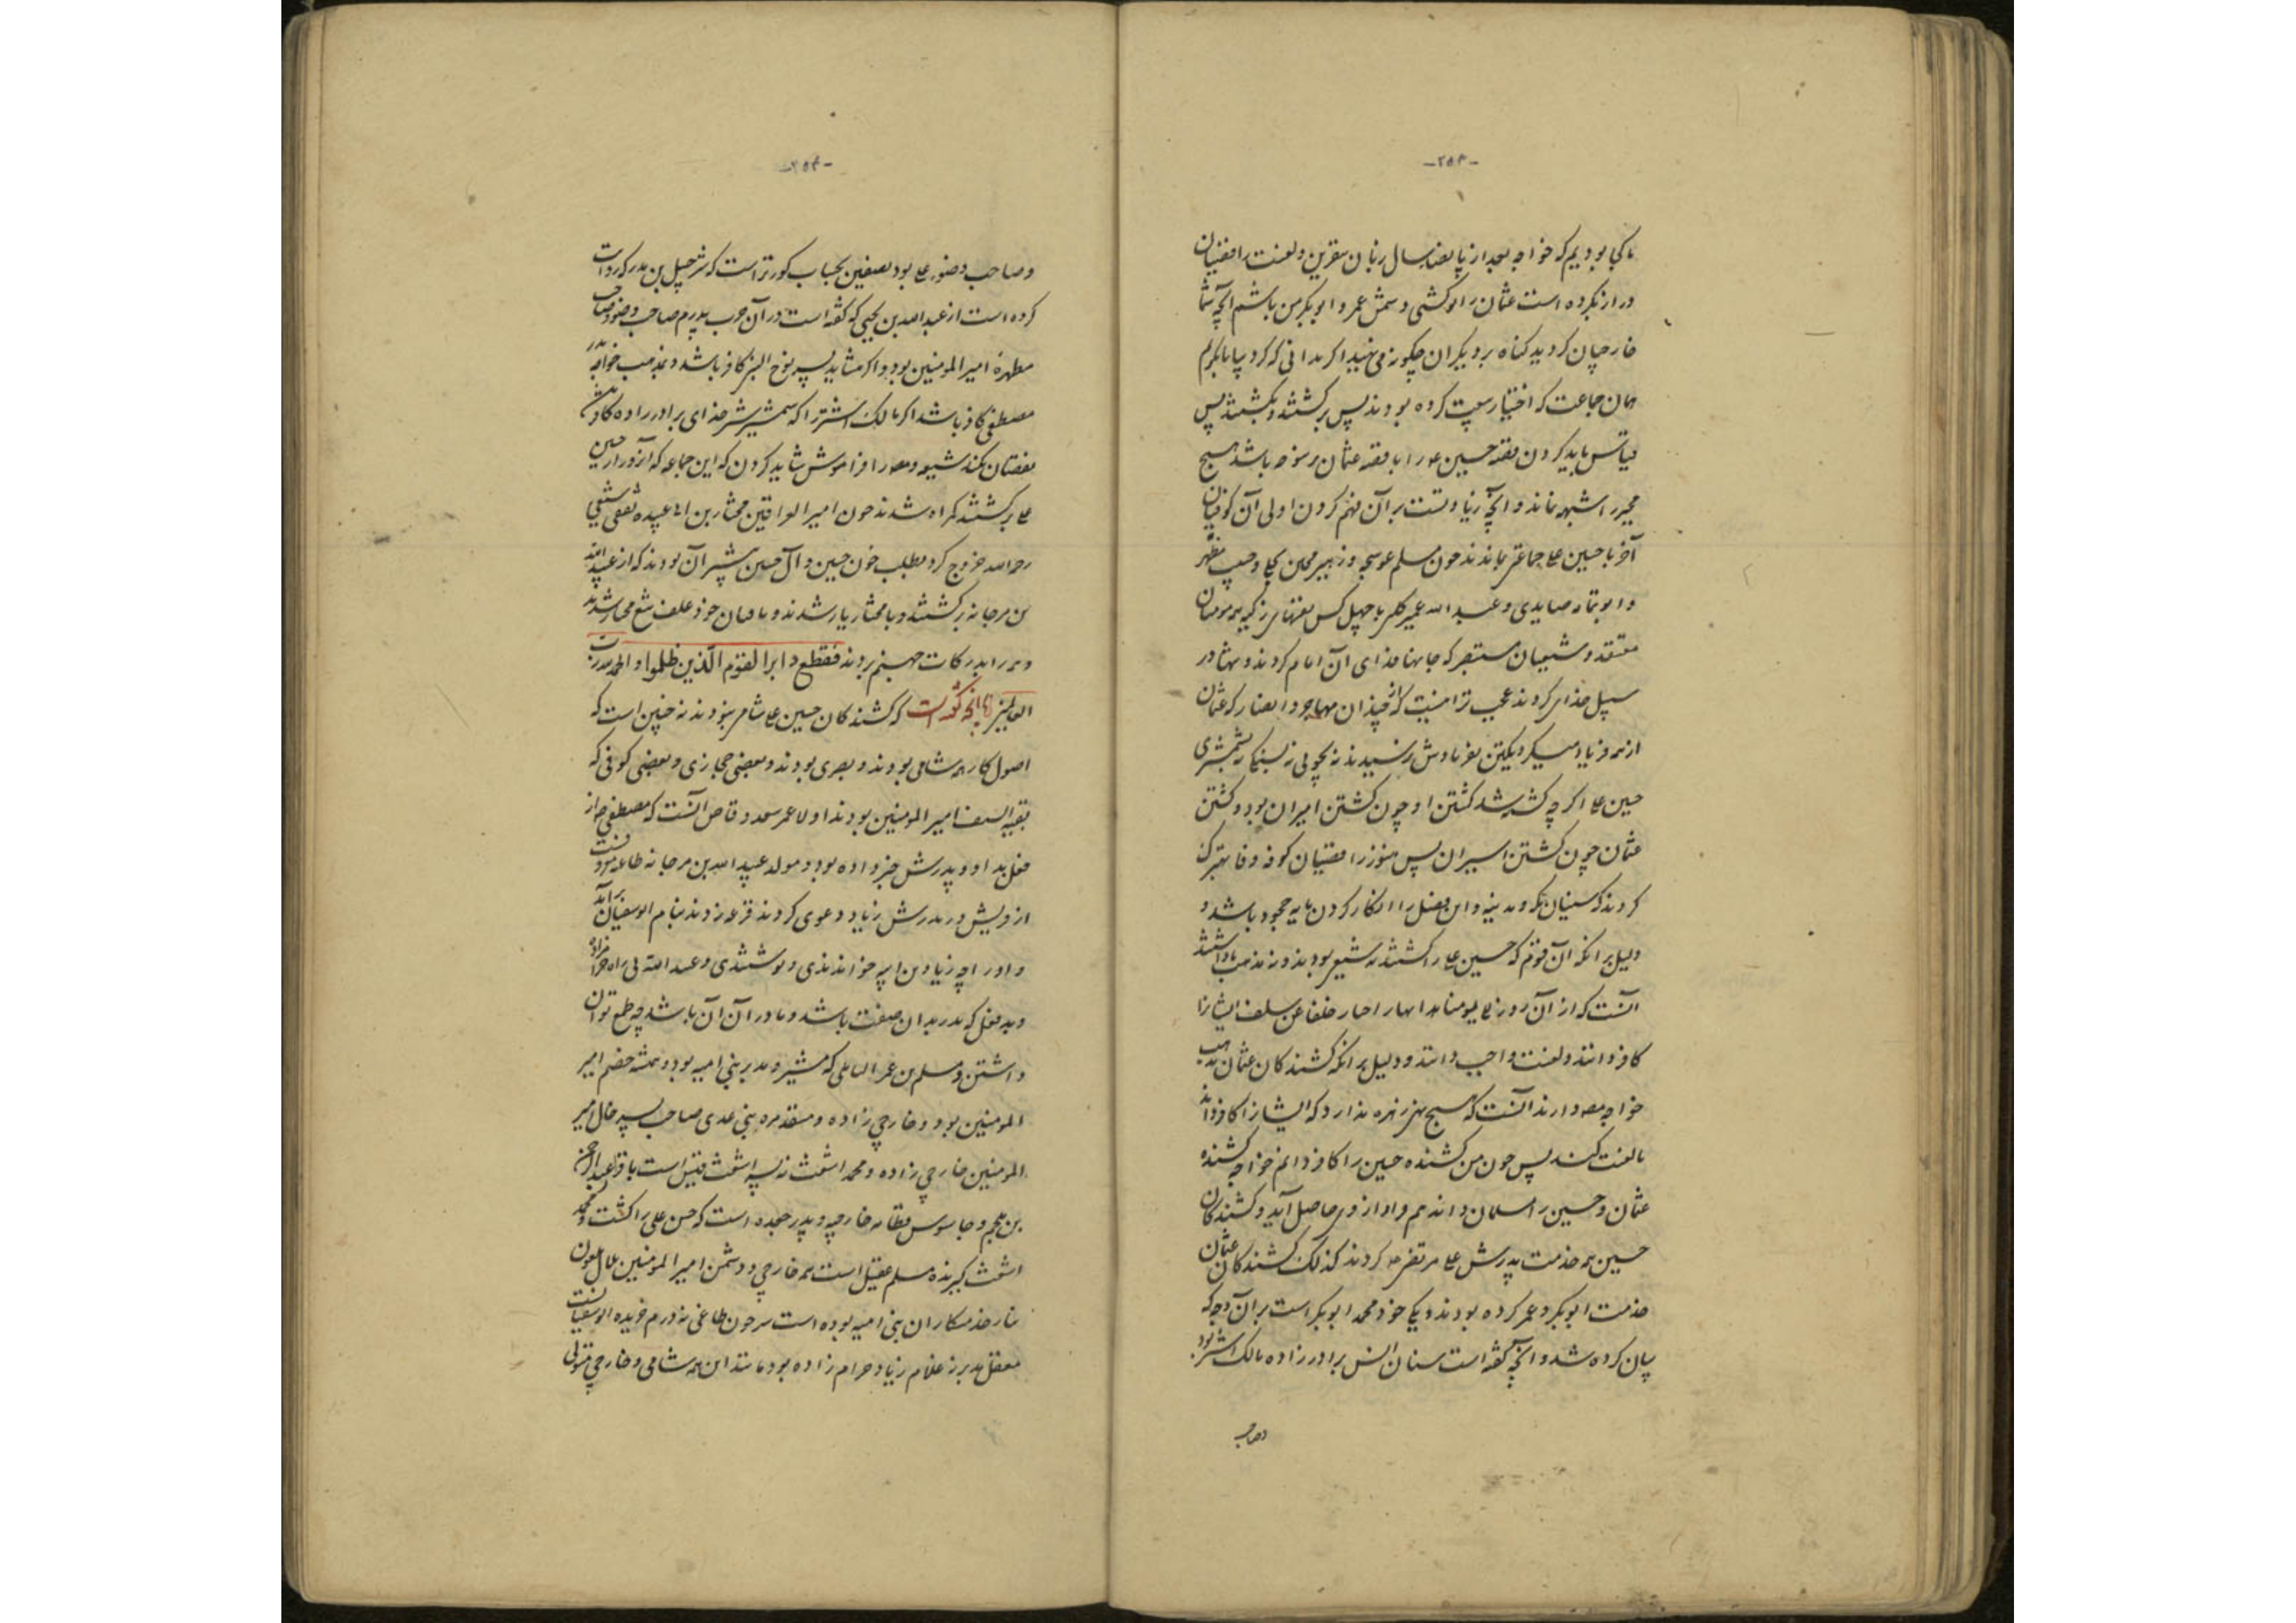 -۲۵۳-
ما کجا بودیم که خواجه بعد از پانصد سال زبان بنفرین و لعنت رافضیان
دراز بکرده است عثمان را تو کشی و سمش عمر و ابو بکر من باشم آنچه شما
خارجیان کردید کناه بر دیکران چکونه می نهید اکر بدانی که کرد پا
همان جماعت که اختیار بیعت کرده بودند پس برکشتند و بکشتند پس
قیاس باید کردن قصه حسین را با قصه عثمان باشد هیچ
مجبر را شبهه نماند و آنچه زیادتست بر آن فهم کردن اولی آن کوفیان
آخر با حسین جماعتی ماندند چون مسلم عوسجه و زهیر و حبیب مظهر
و ابو ثمامه صایدی و عبد الله عمیر کلبی با چهل کس همه مومنان
معتقد و شیعیان مستبصر که جانها فدای آن امام کردند و تنها در
سبیل خدای کردند عجب تر اینست که از چندان مهاجر و انصار که عثمان
از همه فریاد میکرد یکتن بفریادش نرسیدند نه بچوبی نه بسنکی نه بشمشیری
حسین اکر چه کشته شد کشتن او چون کشتن امیران بود و کشتن
عثمان چون کشتن اسیران پس هنوز رافضیان کوفه وفا بهتر
کردند که سنیان مکه و مدینه و این فصل را انکار کردن مایه جحود باشد و
دلیل بر آنکه آن قوم که حسین را کشتند نه شیعی بودند و نه مذهب ما داشتند
آنست که از آن روز الی یومنا هذا اخبار خلفا عن سلف ایشانرا
کافر دانند و لعنت واجب دانند و دلیل بر آنکه کشندکان عثمان مذهب
خواجه دارند آنست که هیچ زهره ندارد که ایشانرا کافر داند
یا لعنت کند پس چون من کشنده حسین را کافر دانم خواجه کشنده
عثمان و حسین را مسلمان داند هم مراد از وی حاصل آید و کشندکان
حسین همه خدمت پدرش مرتضی کردند کذلک کشندکان عثمان
خدمت ابو بکر و عمر کرده بودند و یکی خود محمد ابو بکر است بر آن وجه که
بیان کرده شد و آنچه کفته است سنان انس برادر زاده مالک اشتر بود
وصاحب
-۲۵۴-
و صاحب وضو بود بصفین بحساب کورتر است که شرحبیل بن بدر که روایت
کرده است از عبد الله بن یحیی که کفته است در آن حرب پدرم صاحب وضو و صاحب
مطهره امیر المومنین بود و اکر شاید پسر نوح النبی کافر باشد و بمذهب خواجه پدر
مصطفی کافر باشد اکر مالک اشتر را که شمشیر خدای برادر زاده
نقصان نکند شیعه را فراموش نشاید کردن که این جماعه که از حسین
برکشتند کمراه شدند چون امیر العراقین مختار بن ابی عبیده ثقفی
رحمه الله خروج کرد بطلب خون حسین و آل حسین بیشتر آن بودند که از عبید الله
بن مرجانه برکشتند و با مختار یار شدند و باقیان خود علف تیغ مختار شدند
و همه را بدرکات جهنم بردند فقطع دابر القوم الذین ظلموا و الحمد لله رب
العالمین اما آنچه کفته است که کشندکان حسین شامی نبودند نه چنین است که
اصول کار همه شامی بودند و بصری بودند و بعضی حجازی و بعضی کوفی که
بقیة السیف امیر المومنین بودند اولا عمر سعد وقاص آنست که مصطفی از
فعل بد او و پدرش خبر داده بود و مولد عبید الله بن مرجانه
از و پیش در پدرش زیاد دعوی کردند قرعه زدند بنام ابو سفیان برآمد
و او را چه زیاد بن ابیه خواندندی و نوشتندی و عبید الله بی راه حرامزاده
و بد فعل که پدر بدان صفت باشد و مادر آن آن باشد چه طمع توان
داشتن و مسلم بن عمر الباهلی که مشیر و مدبر بنی امیه بود و همیشه خصم امیر
المومنین بود و خارجی زاده و منقذ مره بنی عدی صاحب امیر
المومنین خارجی زاده و محمد اشعث نه پسر اشعث قیس است با عبد الرحمن
بن ملجم و جاسوس قطامه خارجیه و پدر جعده است که حسن علی را کشت و محمد
اشعث کیرنده مسلم عقیل است همه خارجی و دشمن امیر المومنین
خدمتکاران بنی امیه بوده است سرجون طاغی نه درم خریده ابو سفیانست
معقل مدبر نه غلام زیاد حرام زاده بود مانند این همه شامی و خارجی